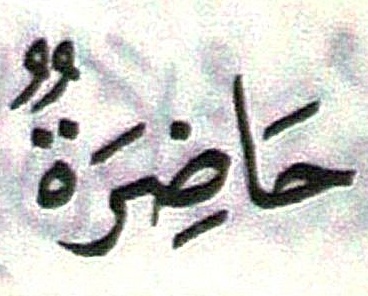 حَاضِرَةٌ